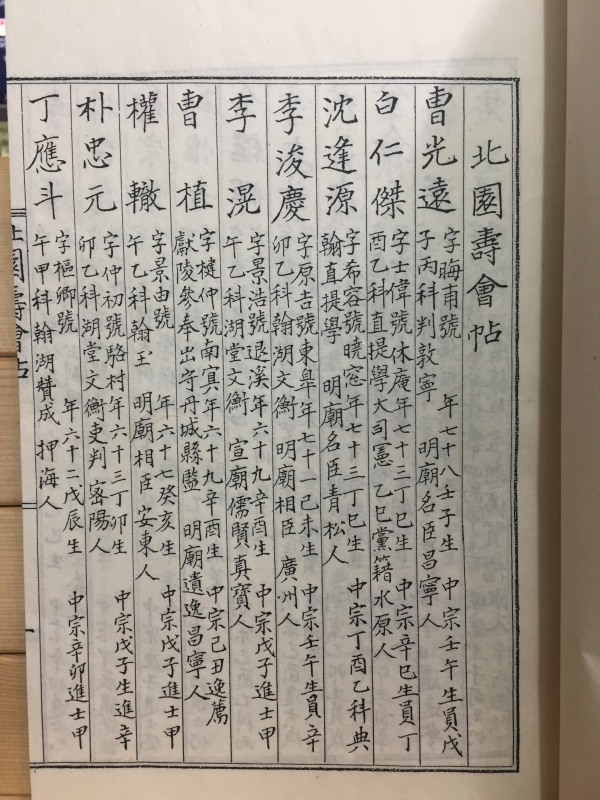 北園壽會帖
曺光遠 字晦甫號 年七十八壬子生 中宗壬午生員戊
子丙科判敦寧 明廟名臣昌寧人
白仁傑 字士偉號休庵年七十三丁巳生 中宗辛巳生員丁
酉乙科直提學大司憲 乙巳黨籍水原人
沈逢源 字希容號曉窓年七十三丁巳生 中宗丁酉乙科典
翰直提學 明廟名臣青松人
李浚慶 字原吉號東皐年七十一己未生 中宗壬午生員辛
卯乙科翰湖文衡 明廟相臣 廣州人
李滉 字景浩號退溪年六十九辛酉生 中宗戊子進士甲
午乙科湖堂文衡 宣廟儒賢真寶人
曺植 字楗仲號南冥年六十九辛酉生 中宗己丑逸薦
獻陵參奉出守丹城縣監 明廟遺逸昌寧人
權轍 字景由號 年六十七癸亥生 中宗戊子進士甲
午乙科翰玉 明廟相臣 安東人
朴忠元 字仲初號駱村年六十三丁卯生 中宗戊子生進辛
卯乙科湖堂文衡吏判 密陽人
丁應斗 字樞卿號 年六十二戊辰生 中宗辛卯進士甲
午甲科翰湖贊成 押海人
北園壽會帖
一